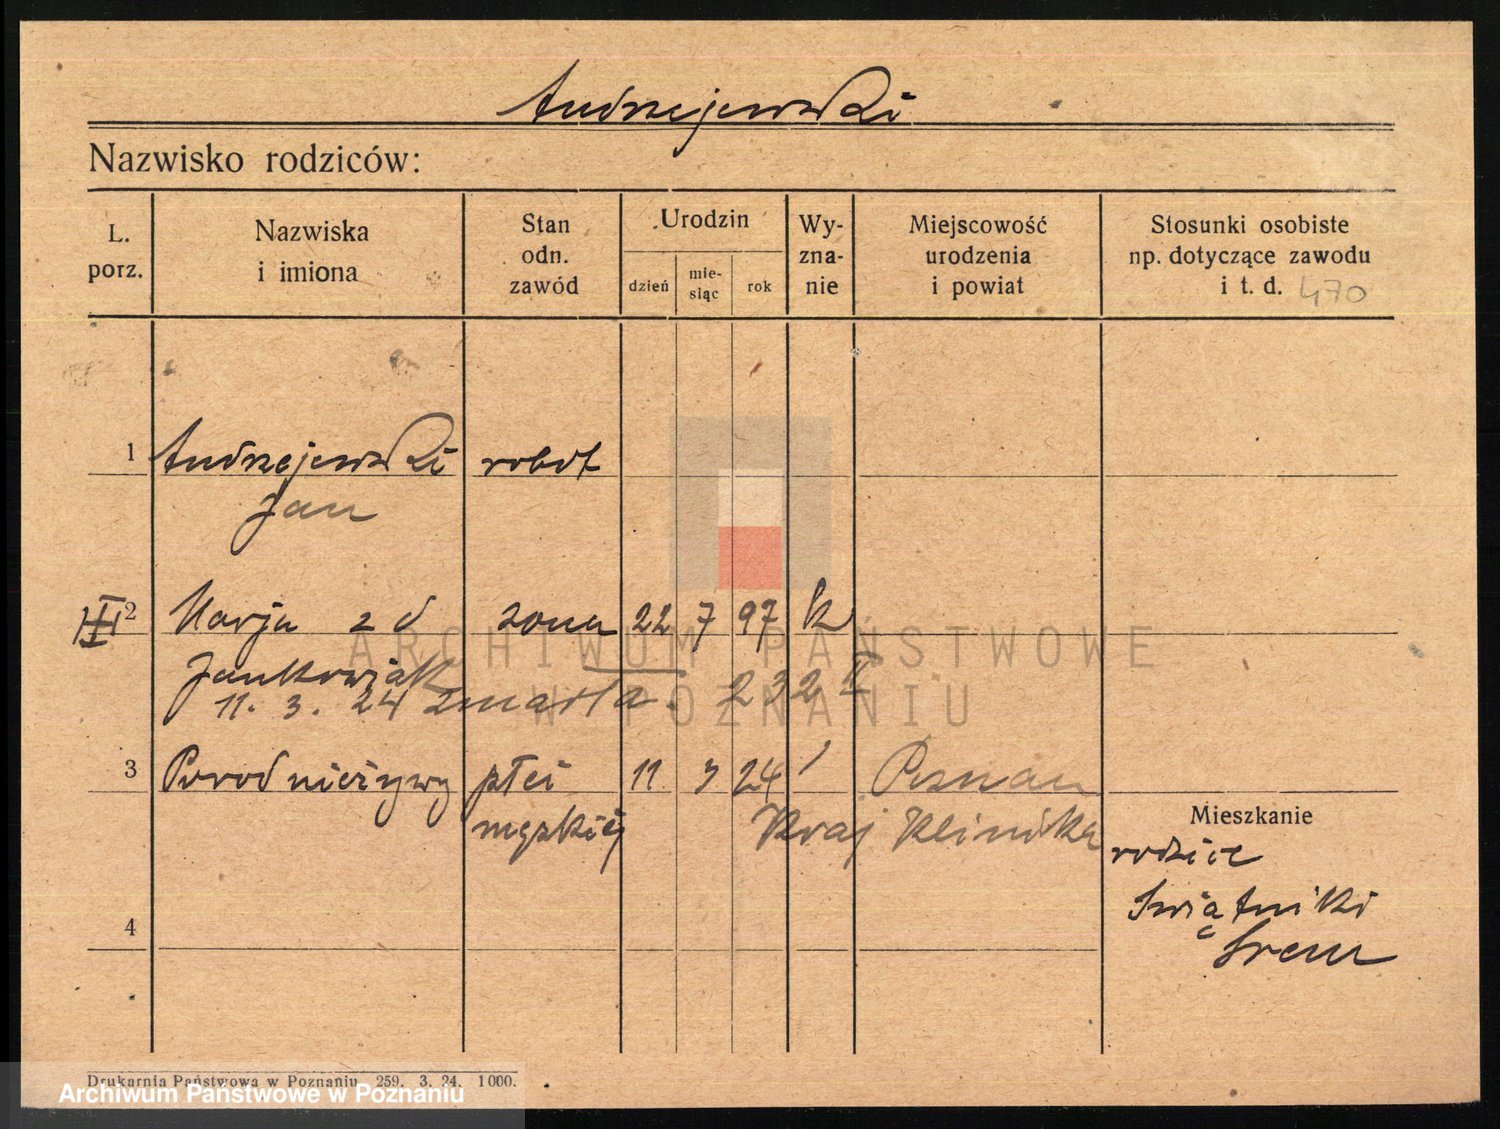 Andrzejewski
Nazwisko rodziców:
L. porz.
Nazwiska i imiona
Stan odn. zawód
Urodzin
dzień
mie- siąc
rok
Wy- zna- nie
Miejscowość urodzenia i powiat
Stosunki osobiste np. dotyczące zawodu i t. d. 470
1 Andrzejewski robot
Jan
2 Marja z d żona 22 7 97 k
Jankowiak
11. 3. 24 zmarła. 232 II
3 Poród nieżywy płci 11 3 24 Poznań
męskiej Kraj Klinika
Mieszkanie
rodzice
Świątniki
Śrem
4
ARCHIWUM PAŃSTWOWE
W POZNANIU
Drukarnia Państwowa w Poznaniu 259. 3. 24. 1000.
Archiwum Państwowe w Poznaniu